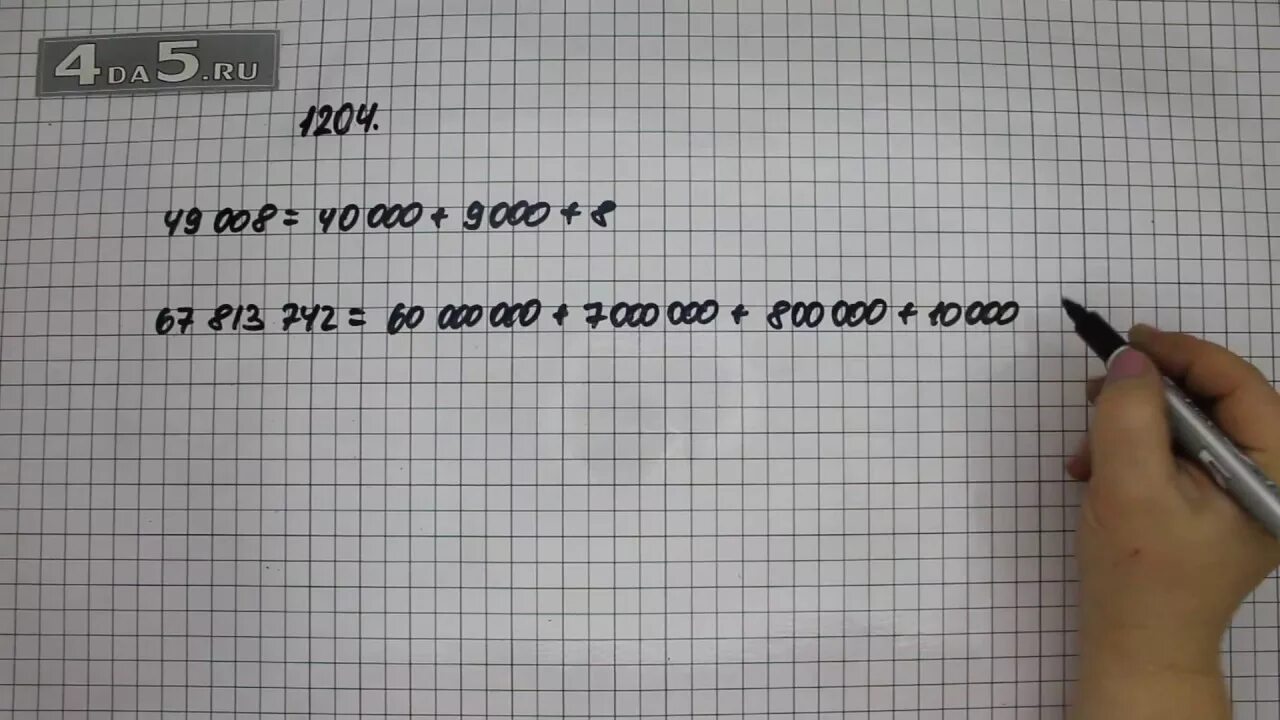 4DA5.RU
1204.
49 008 = 40 000 + 9 000 + 8
67 813 742 = 60 000 000 + 7 000 000 + 800 000 + 10 000